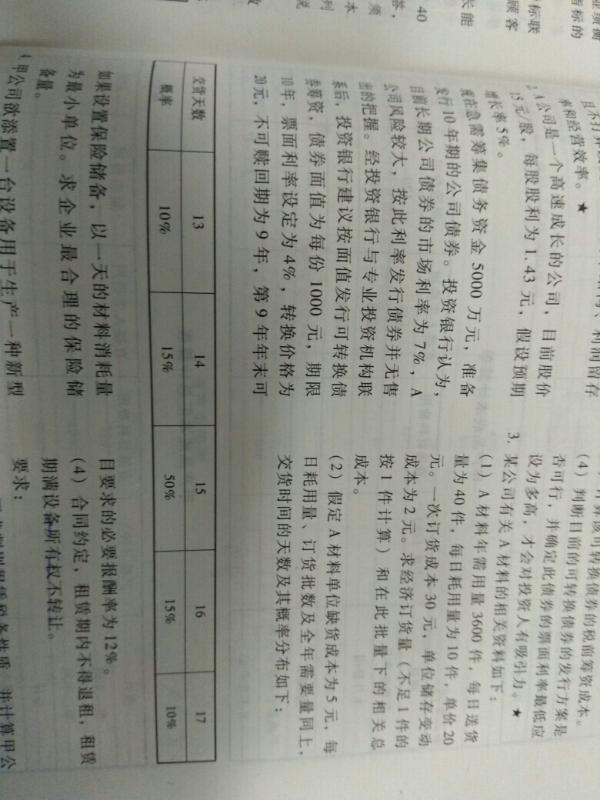 业绩衡
指标的
指标联
顾客
长能
40
答，
须
本
列
结构、利润留存
率和经营效率。★
公司是一个高速成长的公司，目前股价
15元/股，每股股利为1.43元，假设预期
增长率5%。
现在急需筹集债务资金5000万元，准备
发行10年期的公司债券。投资银行认为，
目前长期公司债券的市场利率为7%，A
公司风险较大，按此利率发行债券并无售
出的把握。经投资银行与专业投资机构联
系后，投资银行建议按面值发行可转换债
券筹资，债券面值为每份1000元，期限
10年，票面利率设定为4%，转换价格为
20元，不可赎回期为9年，第9年年末可
计算该可转换债券的税前筹资成本。
(4) 判断目前的可转换债券的发行方案是
否可行，并确定此债券的票面利率最低应
设为多高，才会对投资人有吸引力。★
3. 某公司有关A材料的相关资料如下：
(1) A材料年需用量3600件，每日送货
量为40件，每日耗用量为10件，单价20
元。一次订货成本30元，单位储存变动
成本为2元。求经济订货量（不足1件的
按1件计算）和在此批量下的相关总
成本。
(2) 假定A材料单位缺货成本为5元，每
日耗用量、订货批数及全年需要量同上，
交货时间的天数及其概率分布如下：
交货天数 13 14 15 16 17
概率 10% 15% 50% 15% 10%
如果设置保险储备，以一天的材料消耗量
为最小单位。求企业最合理的保险储
备量。
4. 甲公司欲添置一台设备用于生产一种新型
目要求的必要报酬率为12%。
(4) 合同约定，租赁期内不得退租，租赁
期满设备所有权不转让。
要求：